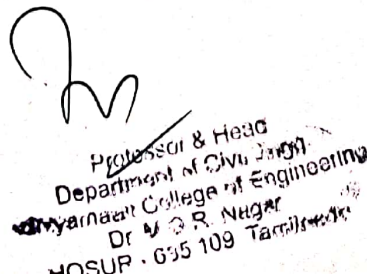 Professor & Head
Department of Civil Engg.
College of Engineering
Dr M G R. Nagar
HOSUR - 635 109 Tamilnadu